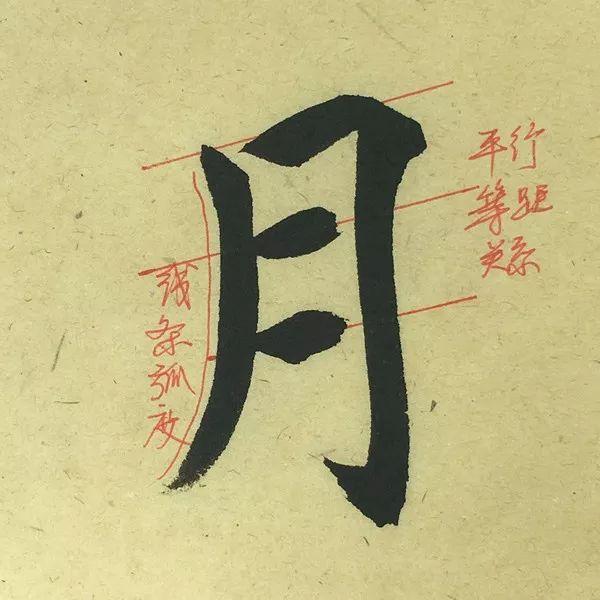 月
平行
等距
关系
线条弧度